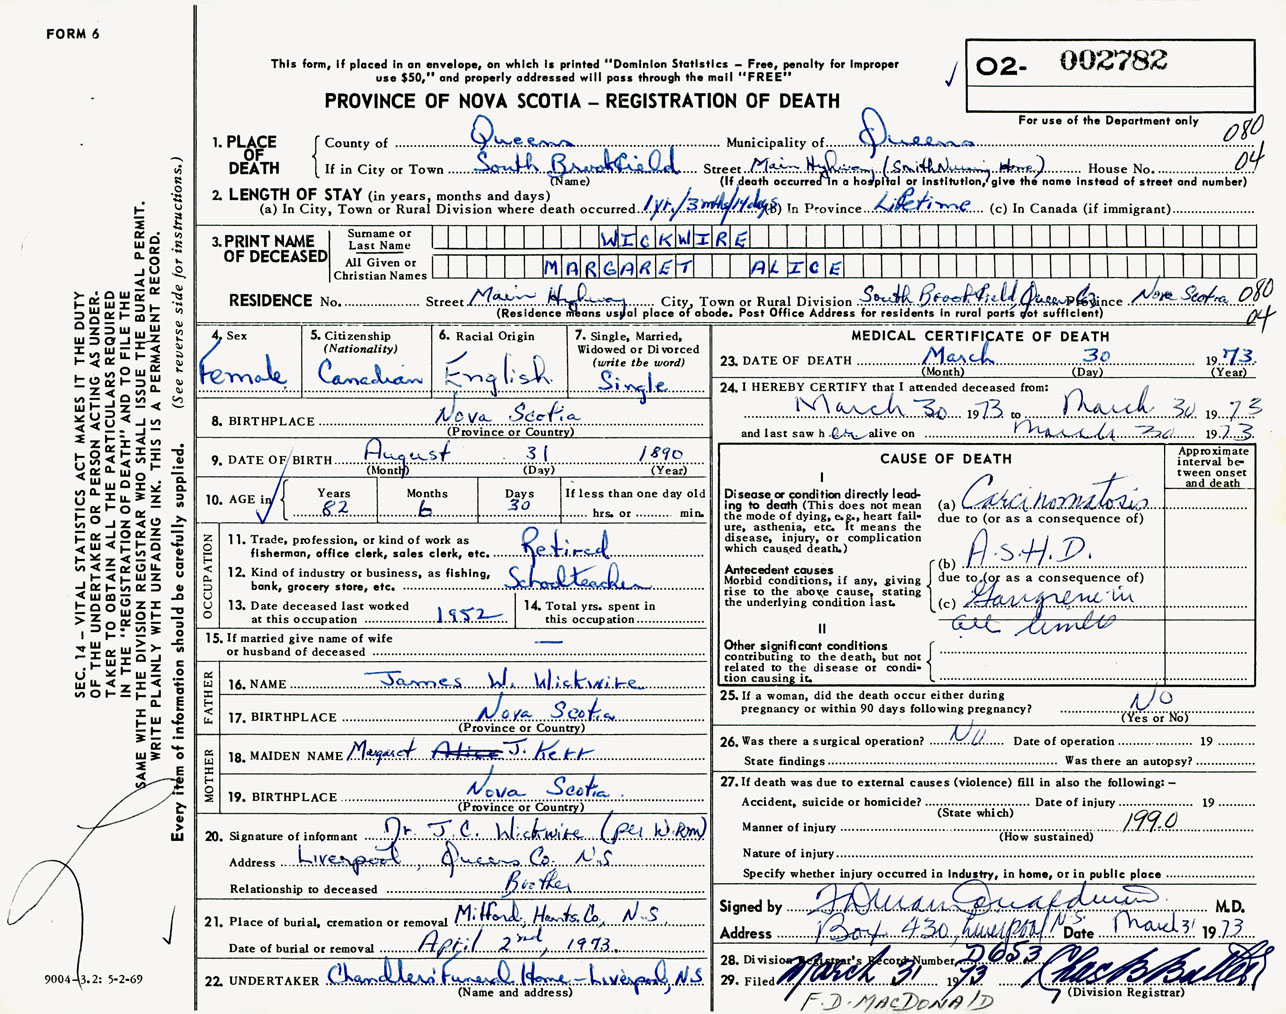 FORM 6
This form, if placed in an envelope, on which is printed "Dominion Statistics – Free, penalty for improper
use $50," and properly addressed will pass through the mail "FREE"
O2- 002782
PROVINCE OF NOVA SCOTIA – REGISTRATION OF DEATH
For use of the Department only
080
04
1. PLACE OF DEATH
County of Queens Municipality of Queens
If in City or Town South Brookfield Street Main Highway (Smith Nursing Home) House No.
(Name) (If death occurred in a hospital or institution, give the name instead of street and number)
2. LENGTH OF STAY (in years, months and days)
(a) In City, Town or Rural Division where death occurred 1 yr./3 mths/14 days (b) In Province Lifetime (c) In Canada (if immigrant)
3. PRINT NAME OF DECEASED
Surname or Last Name WICKWIRE
All Given or Christian Names MARGARET ALICE
RESIDENCE No. Street Main Highway City, Town or Rural Division South Brookfield, Queens Co. Province Nova Scotia 080
(Residence means usual place of abode. Post Office Address for residents in rural parts not sufficient) 04
4. Sex
Female
5. Citizenship
(Nationality)
Canadian
6. Racial Origin
English
7. Single, Married,
Widowed or Divorced
(write the word)
Single
8. BIRTHPLACE Nova Scotia
(Province or Country)
9. DATE OF BIRTH August 31 1890
(Month) (Day) (Year)
10. AGE in
Years 82
Months 6
Days 30
If less than one day old
hrs. or min.
OCCUPATION
11. Trade, profession, or kind of work as
fisherman, office clerk, sales clerk, etc. Retired
12. Kind of industry or business, as fishing,
bank, grocery store, etc. Schoolteacher
13. Date deceased last worked
at this occupation 1952
14. Total yrs. spent in
this occupation
15. If married give name of wife
or husband of deceased —
FATHER
16. NAME James W. Wickwire
17. BIRTHPLACE Nova Scotia
(Province or Country)
MOTHER
18. MAIDEN NAME Margaret Alice J. Kerr
19. BIRTHPLACE Nova Scotia
(Province or Country)
20. Signature of informant Dr. J. C. Wickwire (per W.R.M)
Address Liverpool, Queens Co. N.S
Relationship to deceased Brother
21. Place of burial, cremation or removal Milford, Hants Co, N.S.
Date of burial or removal April 2nd, 1973.
22. UNDERTAKER Chandlers' Funeral Home – Liverpool, N.S.
(Name and address)
MEDICAL CERTIFICATE OF DEATH
23. DATE OF DEATH March 30 1973.
(Month) (Day) (Year)
24. I HEREBY CERTIFY that I attended deceased from:
March 30 1973 to March 30 1973
and last saw her alive on March 30 1973
CAUSE OF DEATH
Approximate
interval be-
tween onset
and death
I
Disease or condition directly lead-
ing to death (This does not mean
the mode of dying, e.g., heart fail-
ure, asthenia, etc. It means the
disease, injury, or complication
which caused death.)
(a) Carcinomatosis
due to (or as a consequence of)
Antecedent causes
Morbid conditions, if any, giving
rise to the above cause, stating
the underlying condition last.
(b) A.S.H.D.
due to (or as a consequence of)
(c) Gangrene in
all limbs
II
Other significant conditions
contributing to the death, but not
related to the disease or condi-
tion causing it.
25. If a woman, did the death occur either during
pregnancy or within 90 days following pregnancy? No
(Yes or No)
26. Was there a surgical operation? No Date of operation 19
State findings Was there an autopsy?
27. If death was due to external causes (violence) fill in also the following: –
Accident, suicide or homicide? Date of injury 19
(State which)
Manner of injury 199.0
(How sustained)
Nature of injury
Specify whether injury occurred in Industry, in home, or in public place
Signed by M.D.
Address Box 430, Liverpool N.S. Date March 31 1973
28. Division Registrar's Record Number D653
29. Filed March 31 1973 Chas B Butler
(Division Registrar)
F. D. MACDONALD
SEC. 14 – VITAL STATISTICS ACT MAKES IT THE DUTY
OF THE UNDERTAKER OR PERSON ACTING AS UNDER-
TAKER TO OBTAIN ALL THE PARTICULARS REQUIRED
IN THE "REGISTRATION OF DEATH" AND TO FILE THE
SAME WITH THE DIVISION REGISTRAR WHO SHALL ISSUE THE BURIAL PERMIT.
WRITE PLAINLY WITH UNFADING INK. THIS IS A PERMANENT RECORD.
Every item of information should be carefully supplied. (See reverse side for instructions.)
9004-3.2: 5-2-69